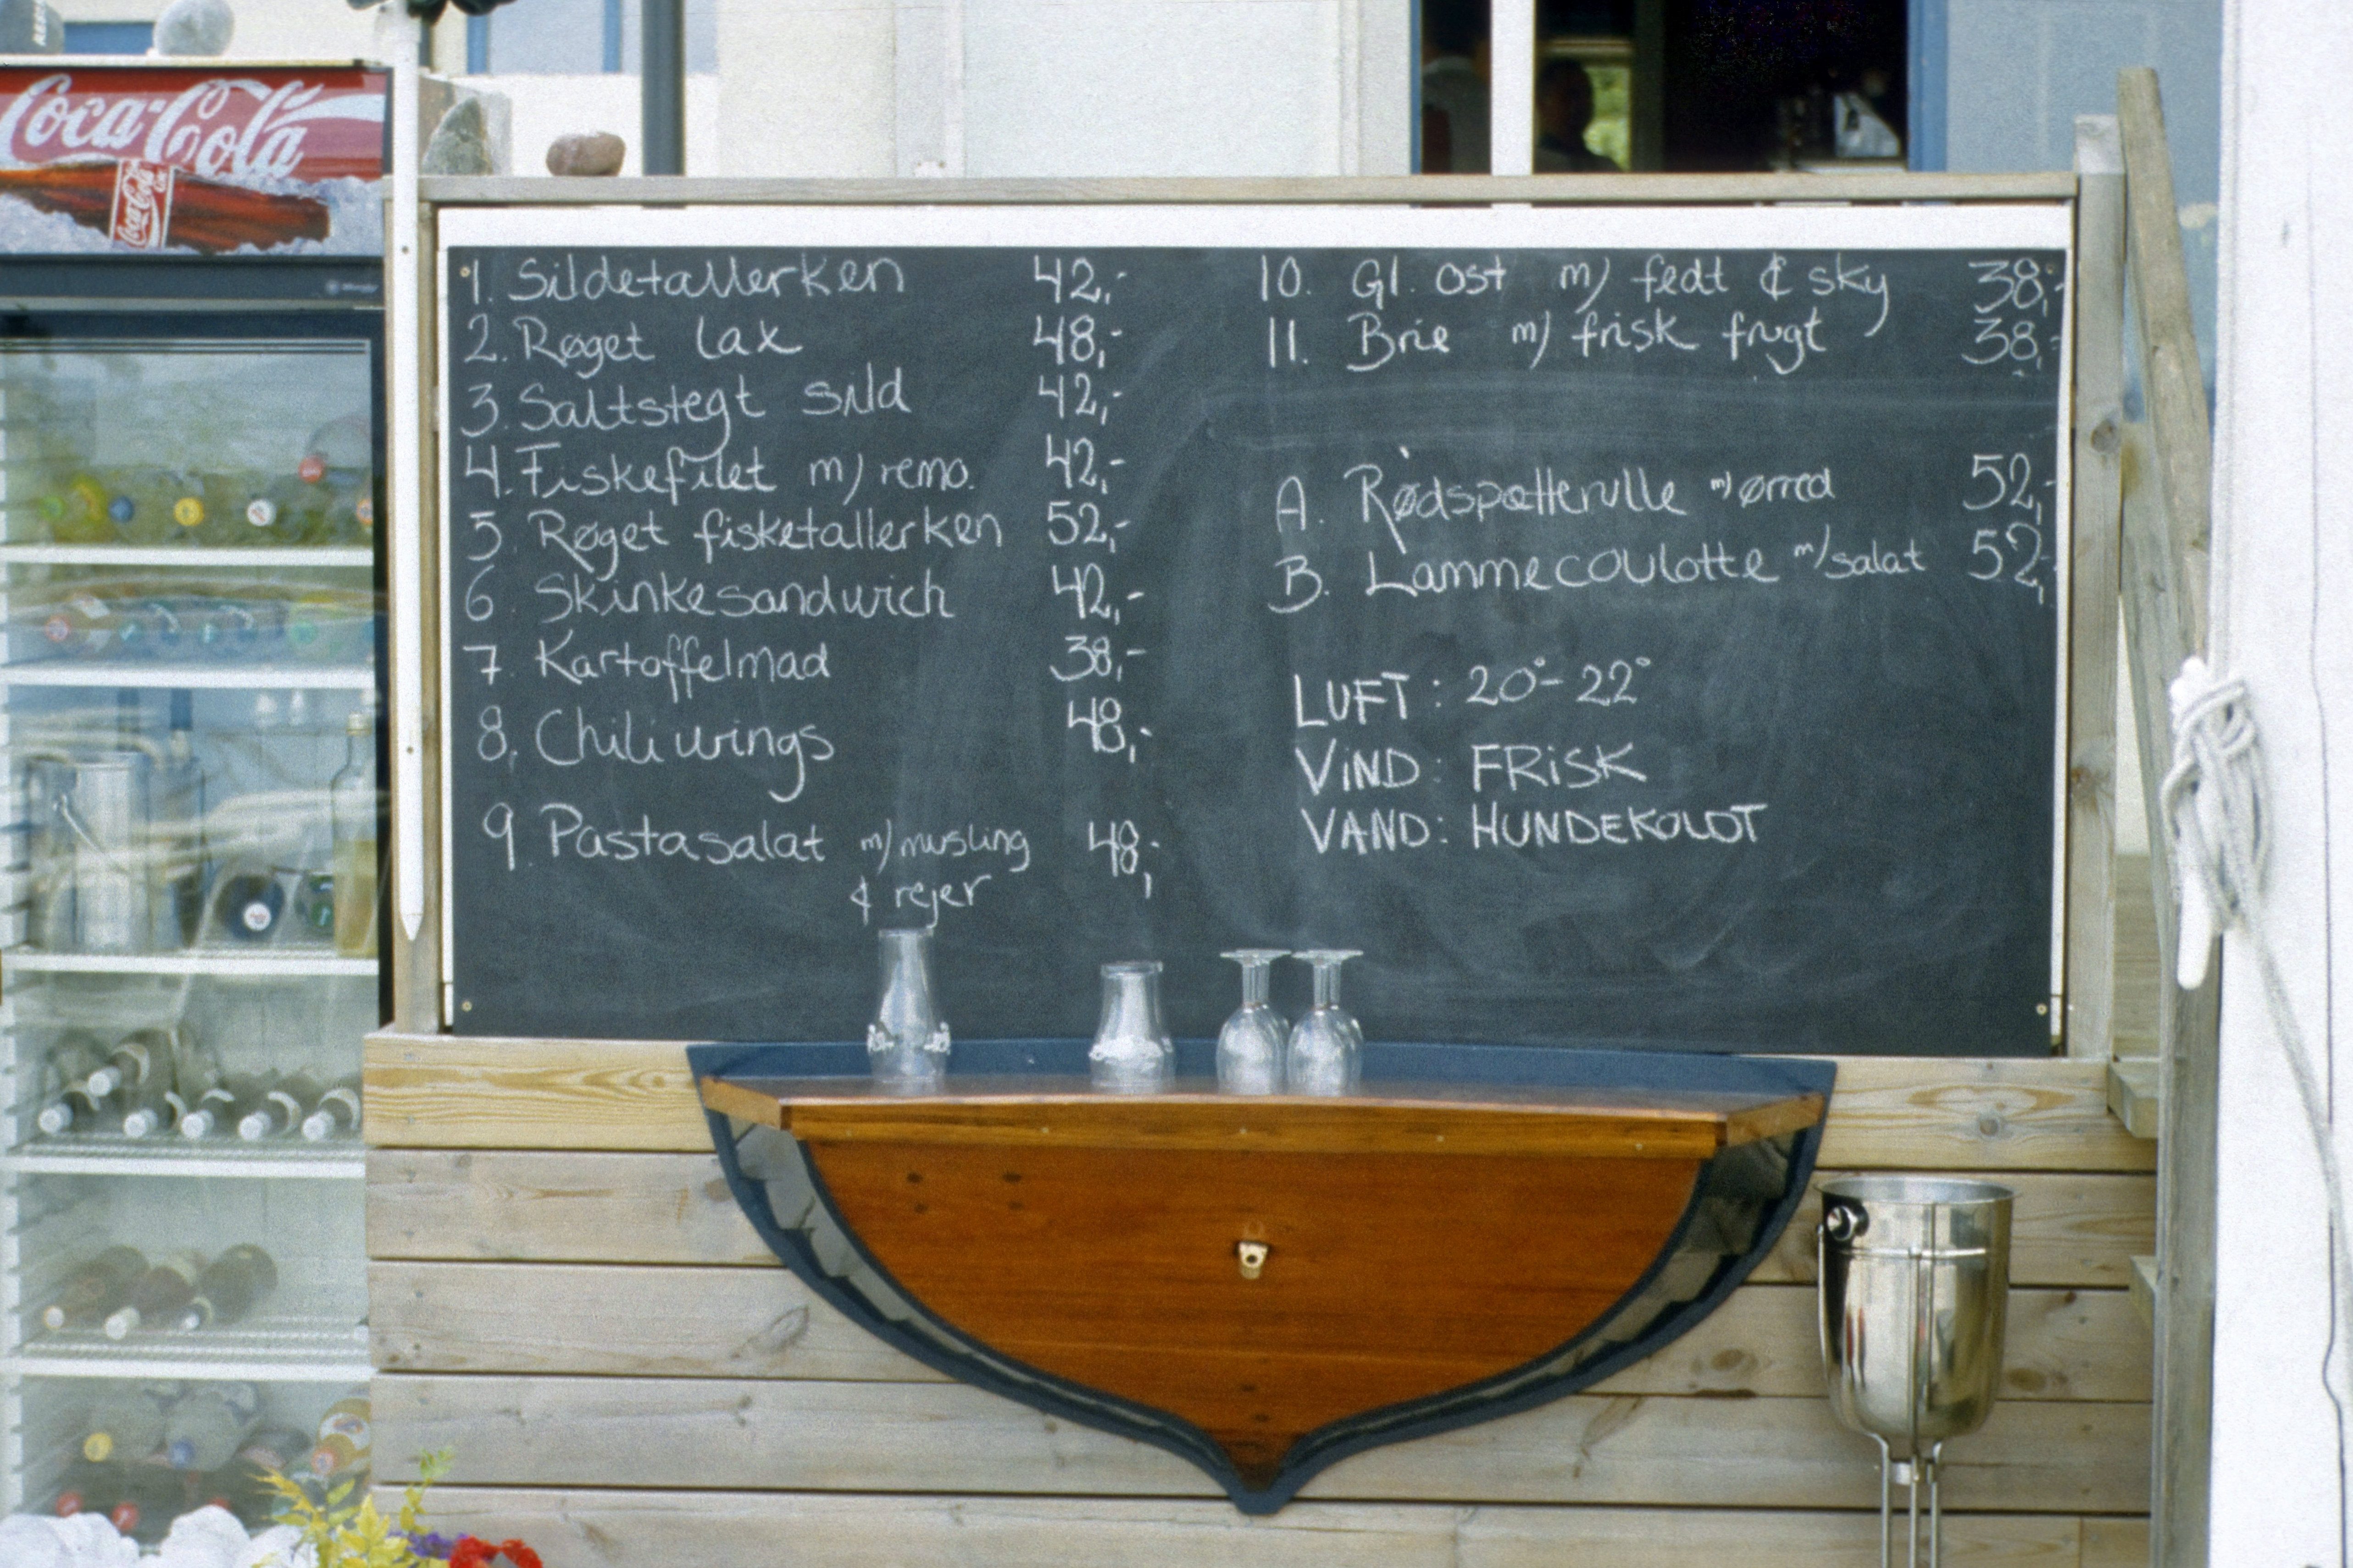 Coca-Cola
Coca-Cola
1. Sildetallerken 42,-
2. Røget lax 48,-
3. Saltstegt sild 42,-
4. Fiskefilet m/ remo. 42,-
5. Røget fisketallerken 52,-
6. Skinkesandwich 42,-
7. Kartoffelmad 38,-
8. Chiliwings 48,-
9. Pastasalat m/ musling 48,-
& rejer
10. Gl. ost m/ fedt & sky 38,-
11. Brie m/ frisk frugt 38,-
A. Rødspætterulle m/ ørred 52,-
B. Lammecoulotte m/ salat 52,-
LUFT: 20°- 22°
VIND: FRISK
VAND: HUNDEKOLDT